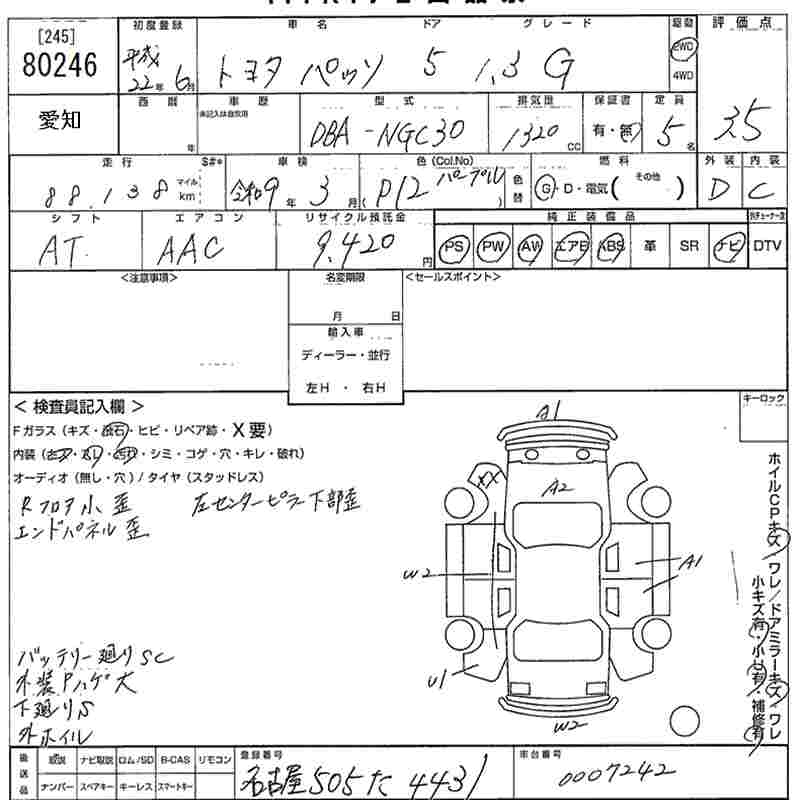 [245]
80246
愛知
初度登録
平成
22年 6月
車名 ドア グレード
トヨタ パッソ 5 1.3 G
駆動
2WD
4WD
評価点
3.5
西暦
年
車歴
未記入は自家用
型式
DBA-NGC30
排気量
1320 cc
保証書
有・無
定員
5名
走行 S#*
88,138 マイル km
車検
令和9年 3月
色(Col.No)
P12 パープル
色替
燃料
G・D・電気( その他 )
外装
D
内装
C
シフト
AT
エアコン
AAC
リサイクル預託金
9,420円
純正装備品
PS PW AW エアB ABS 革 SR ナビ DTV
<注意事項>
名変期限
月 日
輸入車
ディーラー・並行
左H ・ 右H
<セールスポイント>
キーロック
<検査員記入欄>
Fガラス(キズ・飛石・ヒビ・リペア跡・X要)
内装(キズ・スレ・汚れ・シミ・コゲ・穴・キレ・破れ)
オーディオ(無し・穴)/タイヤ(スタッドレス)
Rフロア小歪 左センターピラー下部歪
エンドパネル歪
バッテリー廻りSC
外装Pハゲ大
下廻りS
外ホイル
A1
XX
A2
W2
A1
U1
W2
ホイルCPキズ/ワレ/ドアミラーキズ・ワレ
小キズ有・小凹有・補修有
後送品
取説 ナビ取説 ロム/SD B-CAS リモコン
ナンバー スペアキー キーレス スマートキー
登録番号
名古屋 505 た 4431
車台番号
0007242